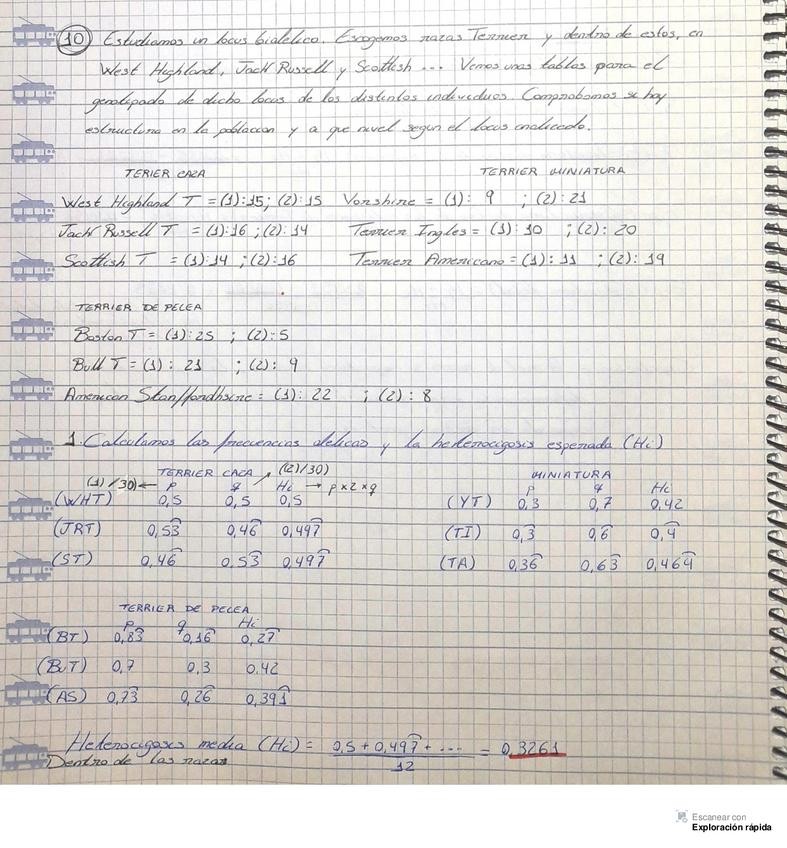 10 Estudiamos un locus bialelico. Escogemos razas Terrier y dentro de estos, en
West Highland, Jack Russell y Scottish ... Vemos unas tablas para el
genotipado de dicho locus de los distintos individuos. Comprobamos si hay
estructura en la poblacion y a que nivel segun el locus analizado.
TERIER CAZA TERRIER MINIATURA
West Highland T = (1):15; (2):15 Yorshire = (1): 9 ; (2): 21
Jack Russell T = (1):16 ; (2): 14 Terrier Ingles = (1): 10 ; (2): 20
Scottish T = (1):14 ; (2):16 Terrier Americano = (1): 11 ; (2): 19
TERRIER DE PELEA
Boston T = (1): 25 ; (2): 5
Bull T = (1): 21 ; (2): 9
American Stanffordhsire = (1): 22 ; (2): 8
1. Calculamos las frecuencias alelicas y la heterocigosis esperada (Hi)
TERRIER CAZA (2)/30) MINIATURA
(1)/30) ← p q Hi → p x 2 x q p q Hi
(WHT) 0,5 0,5 0,5 (YT) 0,3 0,7 0,42
(JRT) 0,53 0,46 0,497 (TI) 0,3 0,6 0,4
(ST) 0,46 0,53 0,497 (TA) 0,36 0,63 0,464
TERRIER DE PELEA
p q Hi
(BT) 0,83 0,16 0,27
(BuT) 0,7 0,3 0,42
(AS) 0,73 0,26 0,391
Heterocigosis media (Hi) = 0,5 + 0,497 + ... / 12 = 0,3261
Dentro de las razas
Escanear con
Exploración rápida